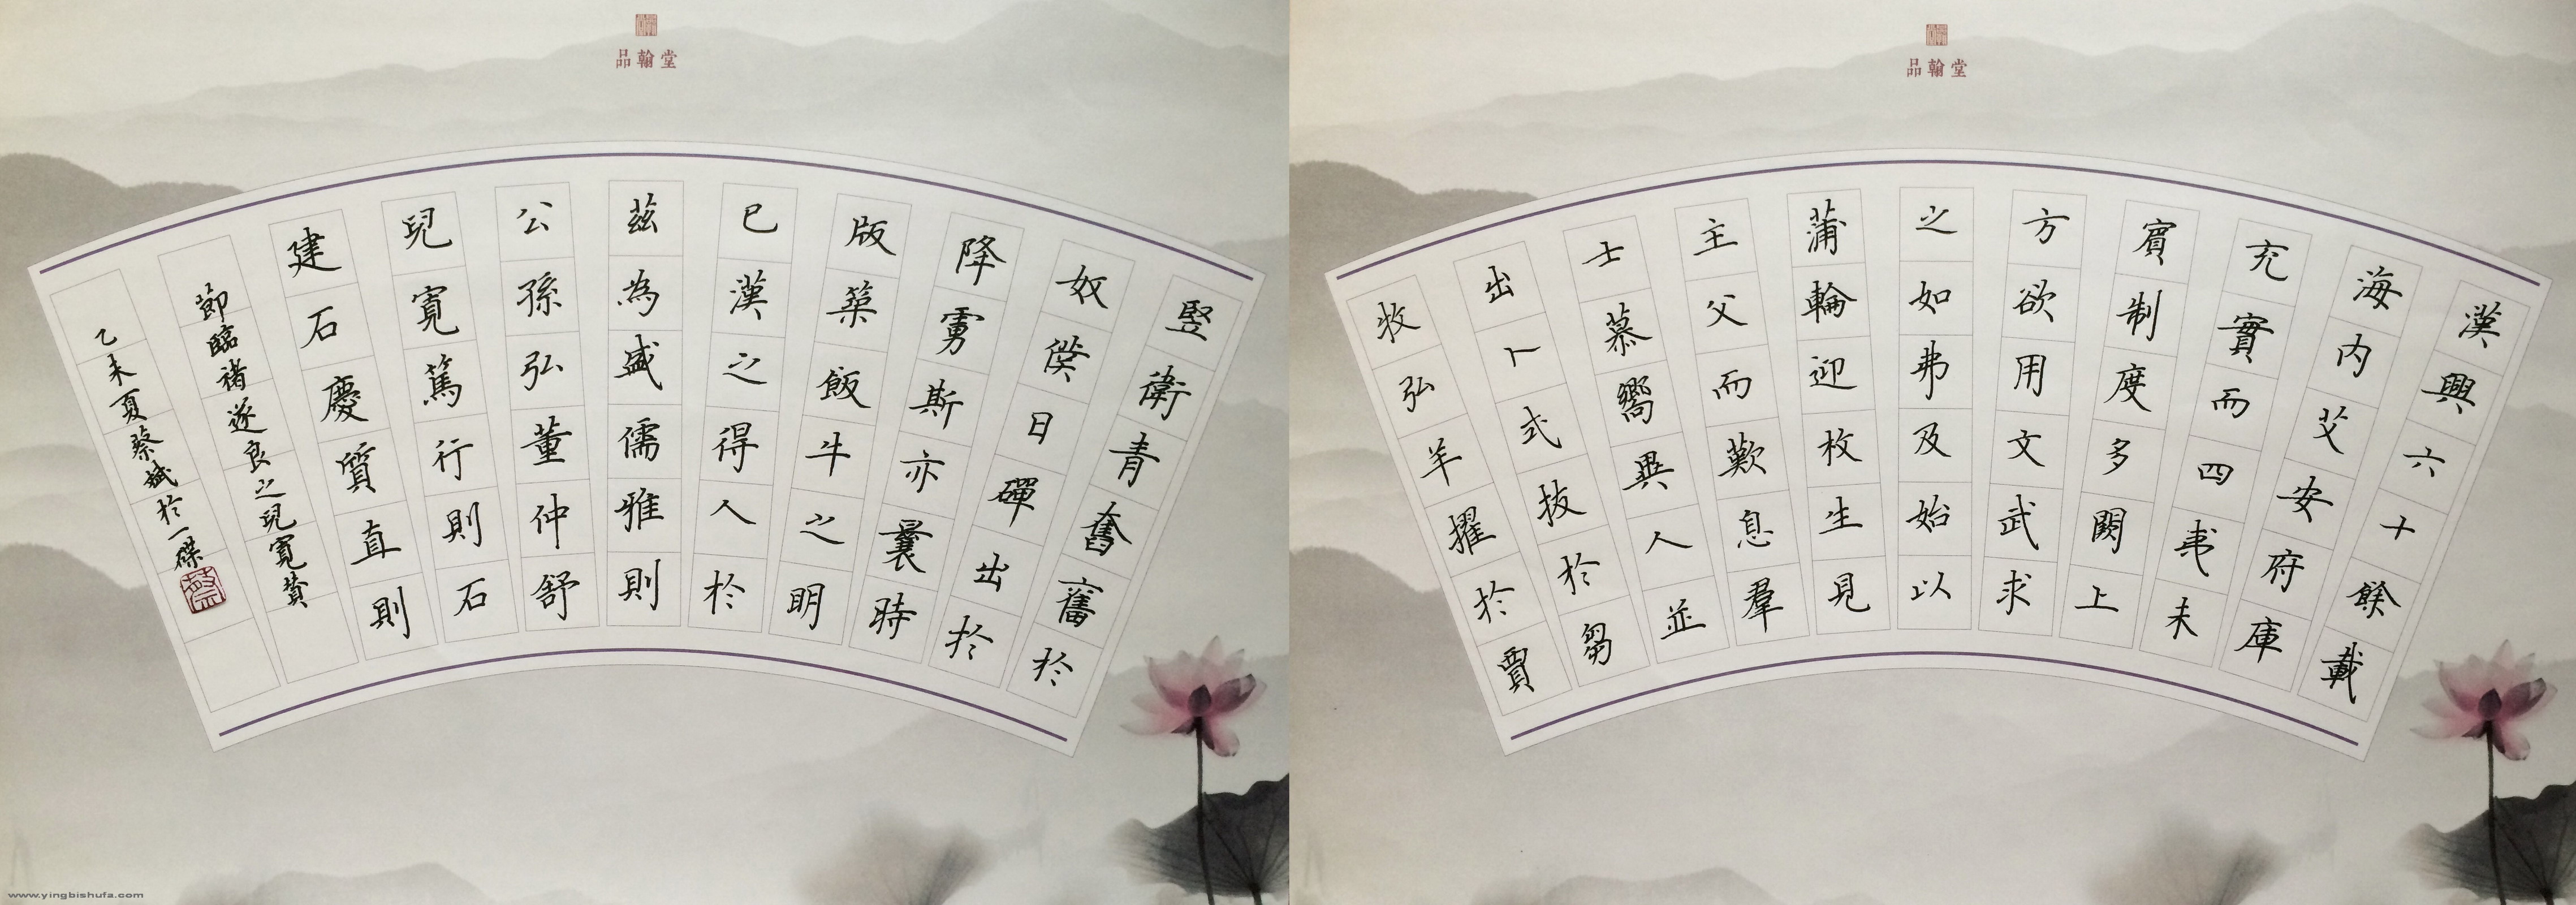 品翰堂
漢興六十餘載
海内艾安府庫
充實而四夷未
賓制度多闕上
方欲用文武求
之如弗及始以
蒲輪迎枚生見
主父而歎息羣
士慕嚮異人並
出卜式拔於芻
牧弘羊擢於賈
品翰堂
豎衛青奮舊於
奴僕日磾出於
降虜斯亦曩時
版築飯牛之明
已漢之得人於
茲為盛儒雅則
公孫弘董仲舒
兒寬篤行則石
建石慶質直則
節臨褚遂良之兒寬贊
乙未夏蔡斌於一磔
www.yingbishufa.com